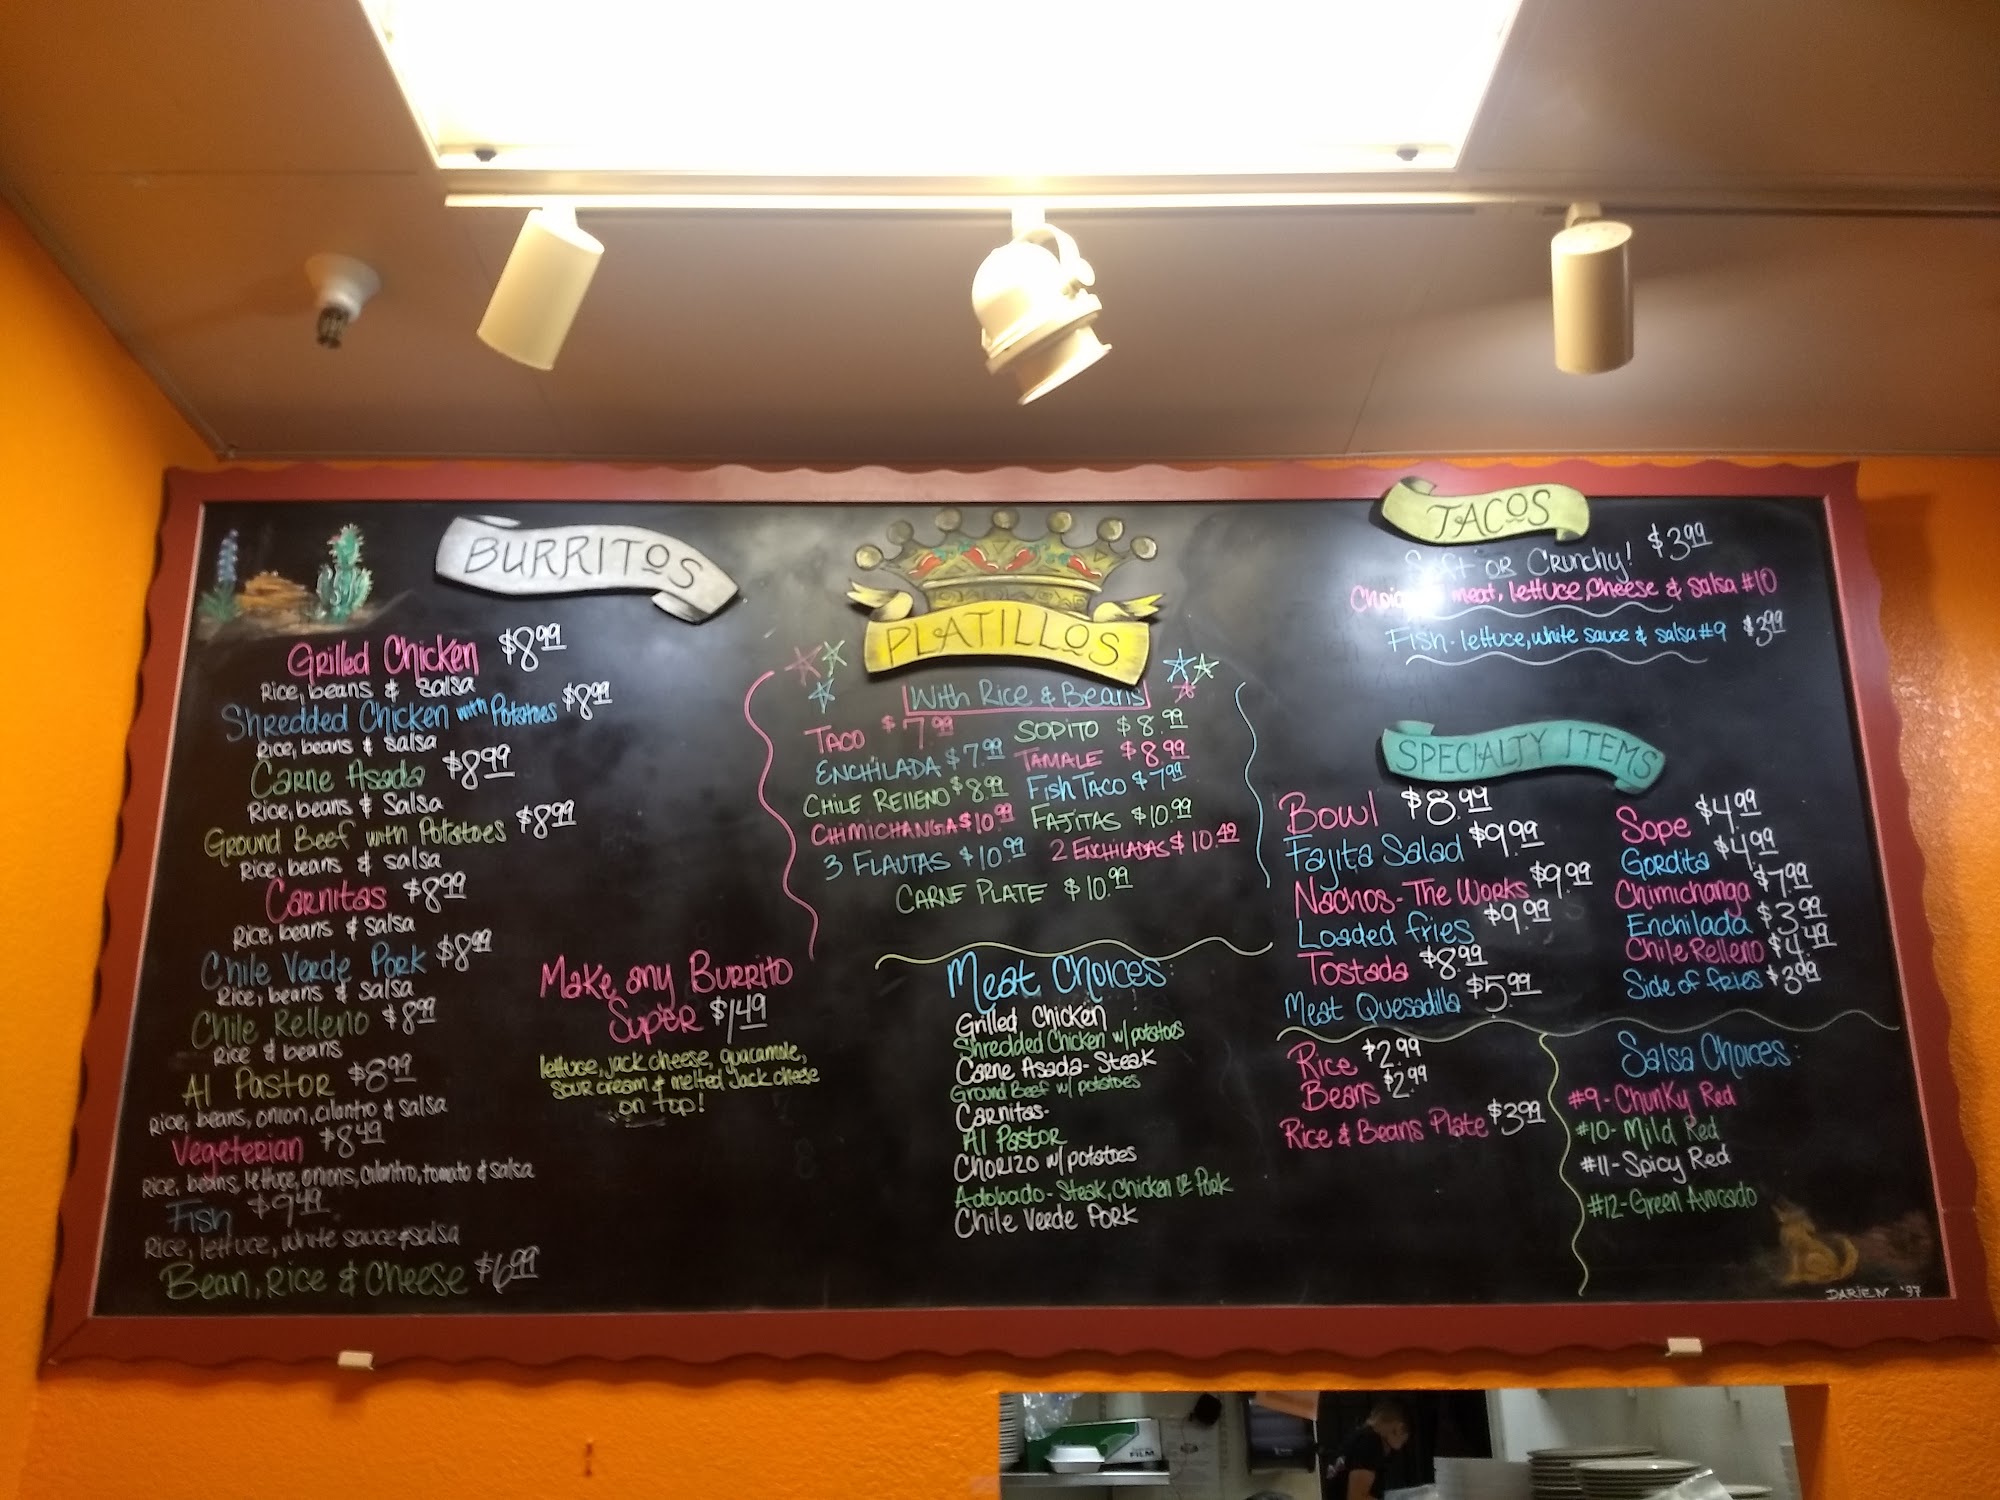 BURRITOS
Grilled Chicken $8.99
Rice, beans & salsa
Shredded Chicken with Potatoes $8.99
Rice, beans & salsa
Carne Asada $8.99
Rice, beans & Salsa
Ground Beef with Potatoes $8.99
Rice, beans & salsa
Carnitas $8.99
Rice, beans & salsa
Chile Verde Pork $8.99
Rice, beans & salsa
Chile Relleno $8.99
Rice & beans
Al Pastor $8.99
Rice, beans, onion, cilantro & salsa
Vegeterian $8.49
Rice, beans, lettuce, onions, cilantro, tomato & salsa
Fish $9.49
Rice, lettuce, white sauce & salsa
Bean, Rice & Cheese $6.99
Make any Burrito
Super $1.49
lettuce, jack cheese, guacamole,
sour cream & melted Jack cheese
on top!
PLATILLOS
With Rice & Beans
TACO $7.99 SOPITO $8.99
ENCHILADA $7.99 TAMALE $8.99
CHILE RELLENO $8.99 FISH TACO $7.99
CHIMICHANGA $10.99 FAJITAS $10.99
3 FLAUTAS $10.99 2 ENCHILADAS $10.49
CARNE PLATE $10.99
Meat Choices:
Grilled Chicken
Shredded Chicken w/ potatoes
Carne Asada- Steak
Ground Beef w/ potatoes
Carnitas-
Al Pastor
Chorizo w/ potatoes
Adobado- Steak, Chicken or Pork
Chile Verde Pork
TACOS
Soft or Crunchy! $3.99
meat, lettuce, Cheese & salsa #10
Fish- lettuce, white sauce & salsa #9 $3.99
SPECIALTY ITEMS
Bowl $8.99
Fajita Salad $9.99
Nachos- The Works $9.99
Loaded fries $9.99
Tostada $8.99
Meat Quesadilla $5.99
Sope $4.99
Gordita $4.99
Chimichanga $7.99
Enchilada $3.99
Chile Relleno $4.49
Side of fries $3.99
Rice $2.99
Beans $2.99
Rice & Beans Plate $3.99
Salsa Choices:
#9- Chunky Red
#10- Mild Red
#11- Spicy Red
#12- Green Avocado
DARIEN '97